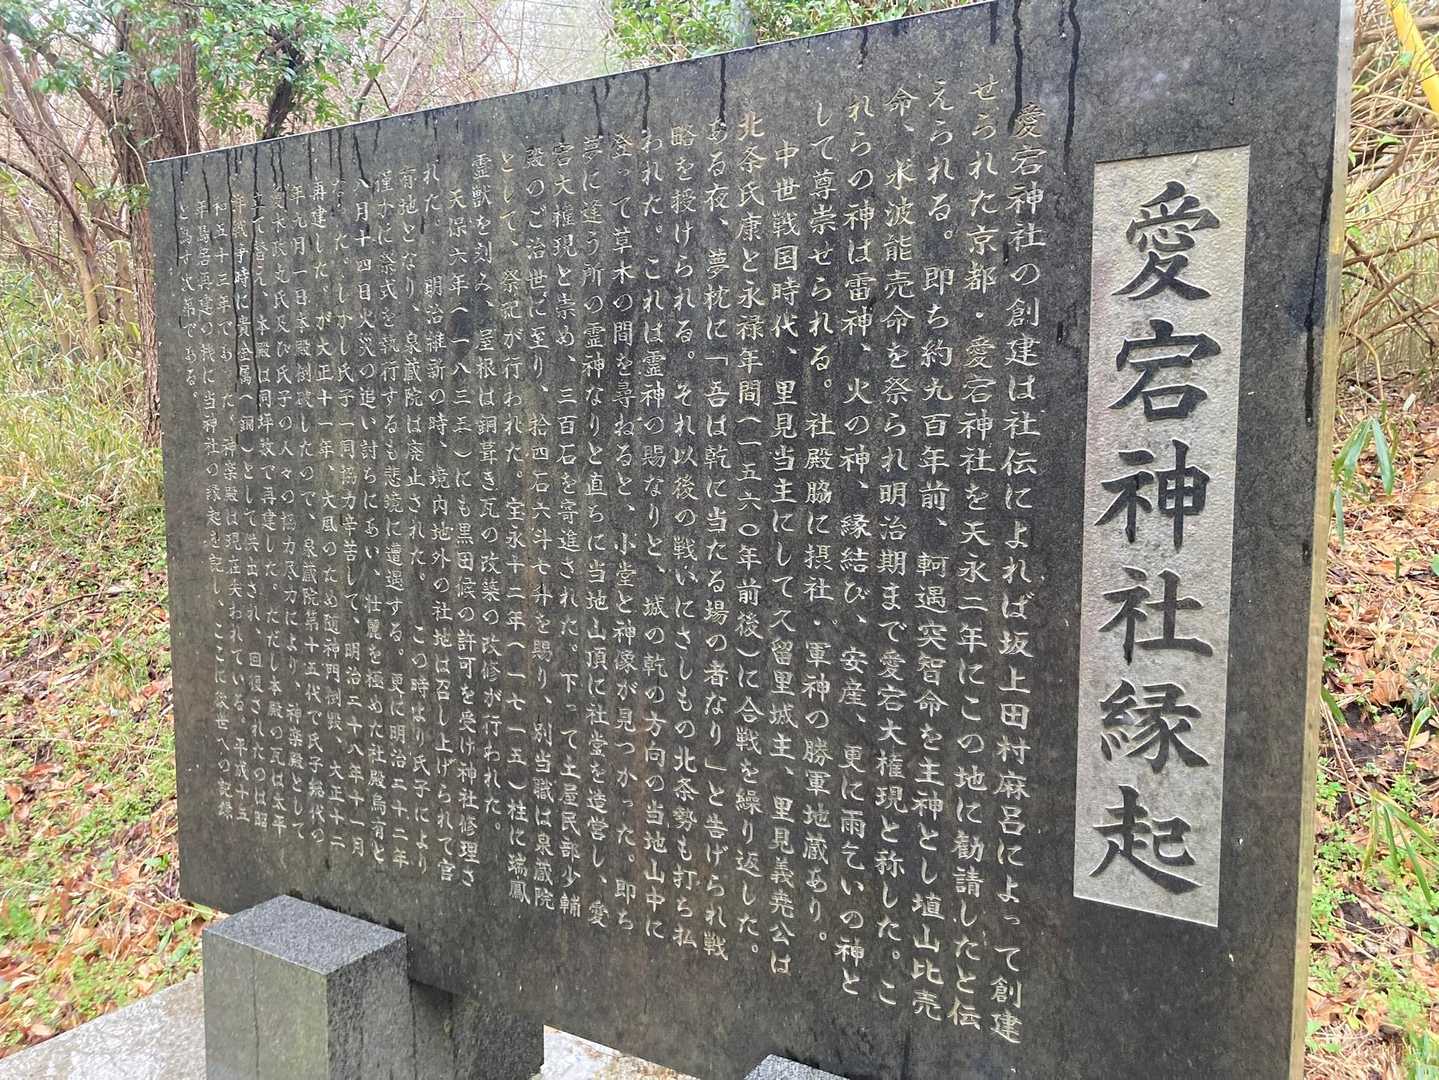 愛宕神社縁起
愛宕神社の創建は社伝によれば坂上田村麻呂によって創建
せられた京都・愛宕神社を天永二年にこの地に勧請したと伝
えられる。即ち約九百年前、軻遇突智命を主神とし埴山比売
命、水波能売命を祭られ明治期まで愛宕大権現と称した。こ
れらの神は雷神、火の神、縁結び、安産、更に雨乞いの神と
して尊崇せられる。社殿脇に摂社・軍神の勝軍地蔵あり。
中世戦国時代、里見当主にして久留里城主、里見義堯公は
北条氏康と永禄年間(一五六〇年前後)に合戦を繰り返した。
ある夜、夢枕に「吾は乾に当たる場の者なり」と告げられ戦
略を授けられる。それ以後の戦いにさしもの北条勢も打ち払
われた。これは霊神の賜なりと、城の乾の方向の当地山中に
登って草木の間を尋ねると、小堂と神像が見つかった。即ち
夢に逢う所の霊神なりと直ちに当地山頂に社堂を造営し、愛
宕大権現と崇め、三百石を寄進された。下って土屋民部少輔
殿のご治世に至り、拾四石六斗七升を賜り、別当職は泉蔵院
として、祭祀が行われた。宝永十二年(一七一五)柱に瑞鳳
霊獣を刻み、屋根は銅葺き瓦の改築の改修が行われた。
天保六年(一八三五)にも黒田候の許可を受け神社修理さ
れた。明治維新の時、境内地外の社地は召し上げられて官
有地となり、泉蔵院は廃止された。この時より氏子により
僅かに祭式を執行するも悲境に遭遇する。更に明治三十二年
八月十四日火災の追い討ちにあい、壮麗を極めた社殿烏有と
なった。しかし氏子一同協力辛苦して、明治三十八年十一月
再建した。が大正十一年、大風のため随神門倒毀、大正十二
年九月一日本殿倒破したので、泉蔵院第十五代で氏子総代の
木政丸氏及び氏子の人々の協力尽力により、神楽殿として
立て替え、本殿は同坪数で再建した。ただし本殿の瓦は太平
洋戦争時に貴金属(銅)として供出され、回復されたのは昭
和五十三年であった。神楽殿は現在失われている。平成十五
年鳥居再建の機に当神社の縁起を記し、ここに後世への記録
と為す次第である。